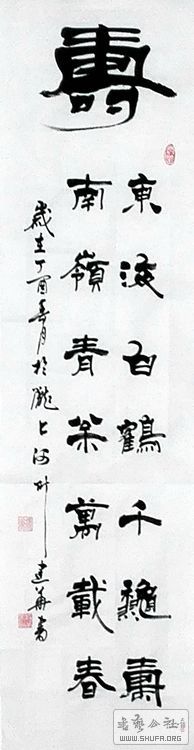 壽
東海白鶴千龝壽
南嶺青枀萬載春
歲在丁酉春月於隴上河州建華書
书艺公社
WWW.SHUFA.ORG